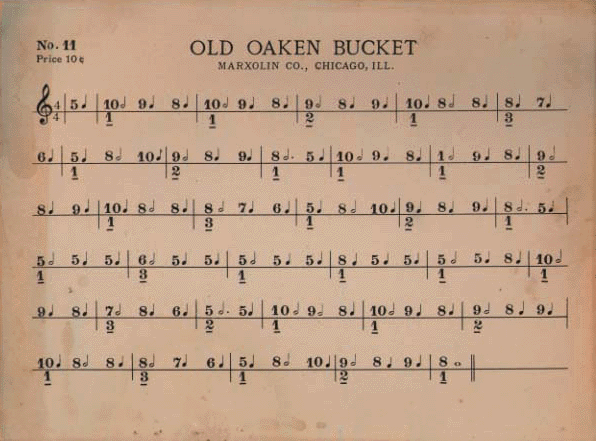 No. 11
Price 10¢
OLD OAKEN BUCKET
MARXOLIN CO., CHICAGO, ILL.
4 4 5 10 9 8 10 9 8 9 8 9 10 8 8 8 7
1 1 2 1 3
6 5 8 10 9 8 9 8 5 10 9 8 1 9 8 9
1 2 1 1 1 2
8 9 10 8 8 8 7 6 5 8 10 9 8 9 8 5
1 3 1 2 1
5 5 5 6 5 5 5 5 5 8 5 5 5 5 8 10
1 3 1 1 1 1
9 8 7 8 6 5 5 10 9 8 10 9 8 9 8 9
3 2 1 1 2
10 8 8 8 7 6 5 8 10 9 8 9 8
1 3 1 2 1